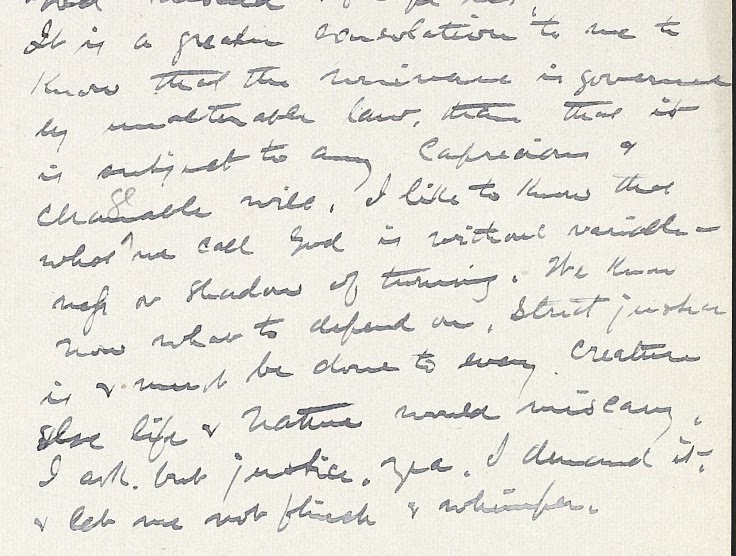 It is a greater consolation to me to
know that the universe is governed
by unalterable law, than that it
is subject to any capricious &
changeable will. I like to know that
what we call God is without variable-
ness or shadow of turning. We know
now what to depend on, strict justice
is & must be done to every creature
else life & nature would miscarry.
I ask but justice, yea, I demand it,
& let me not flinch & whimper.